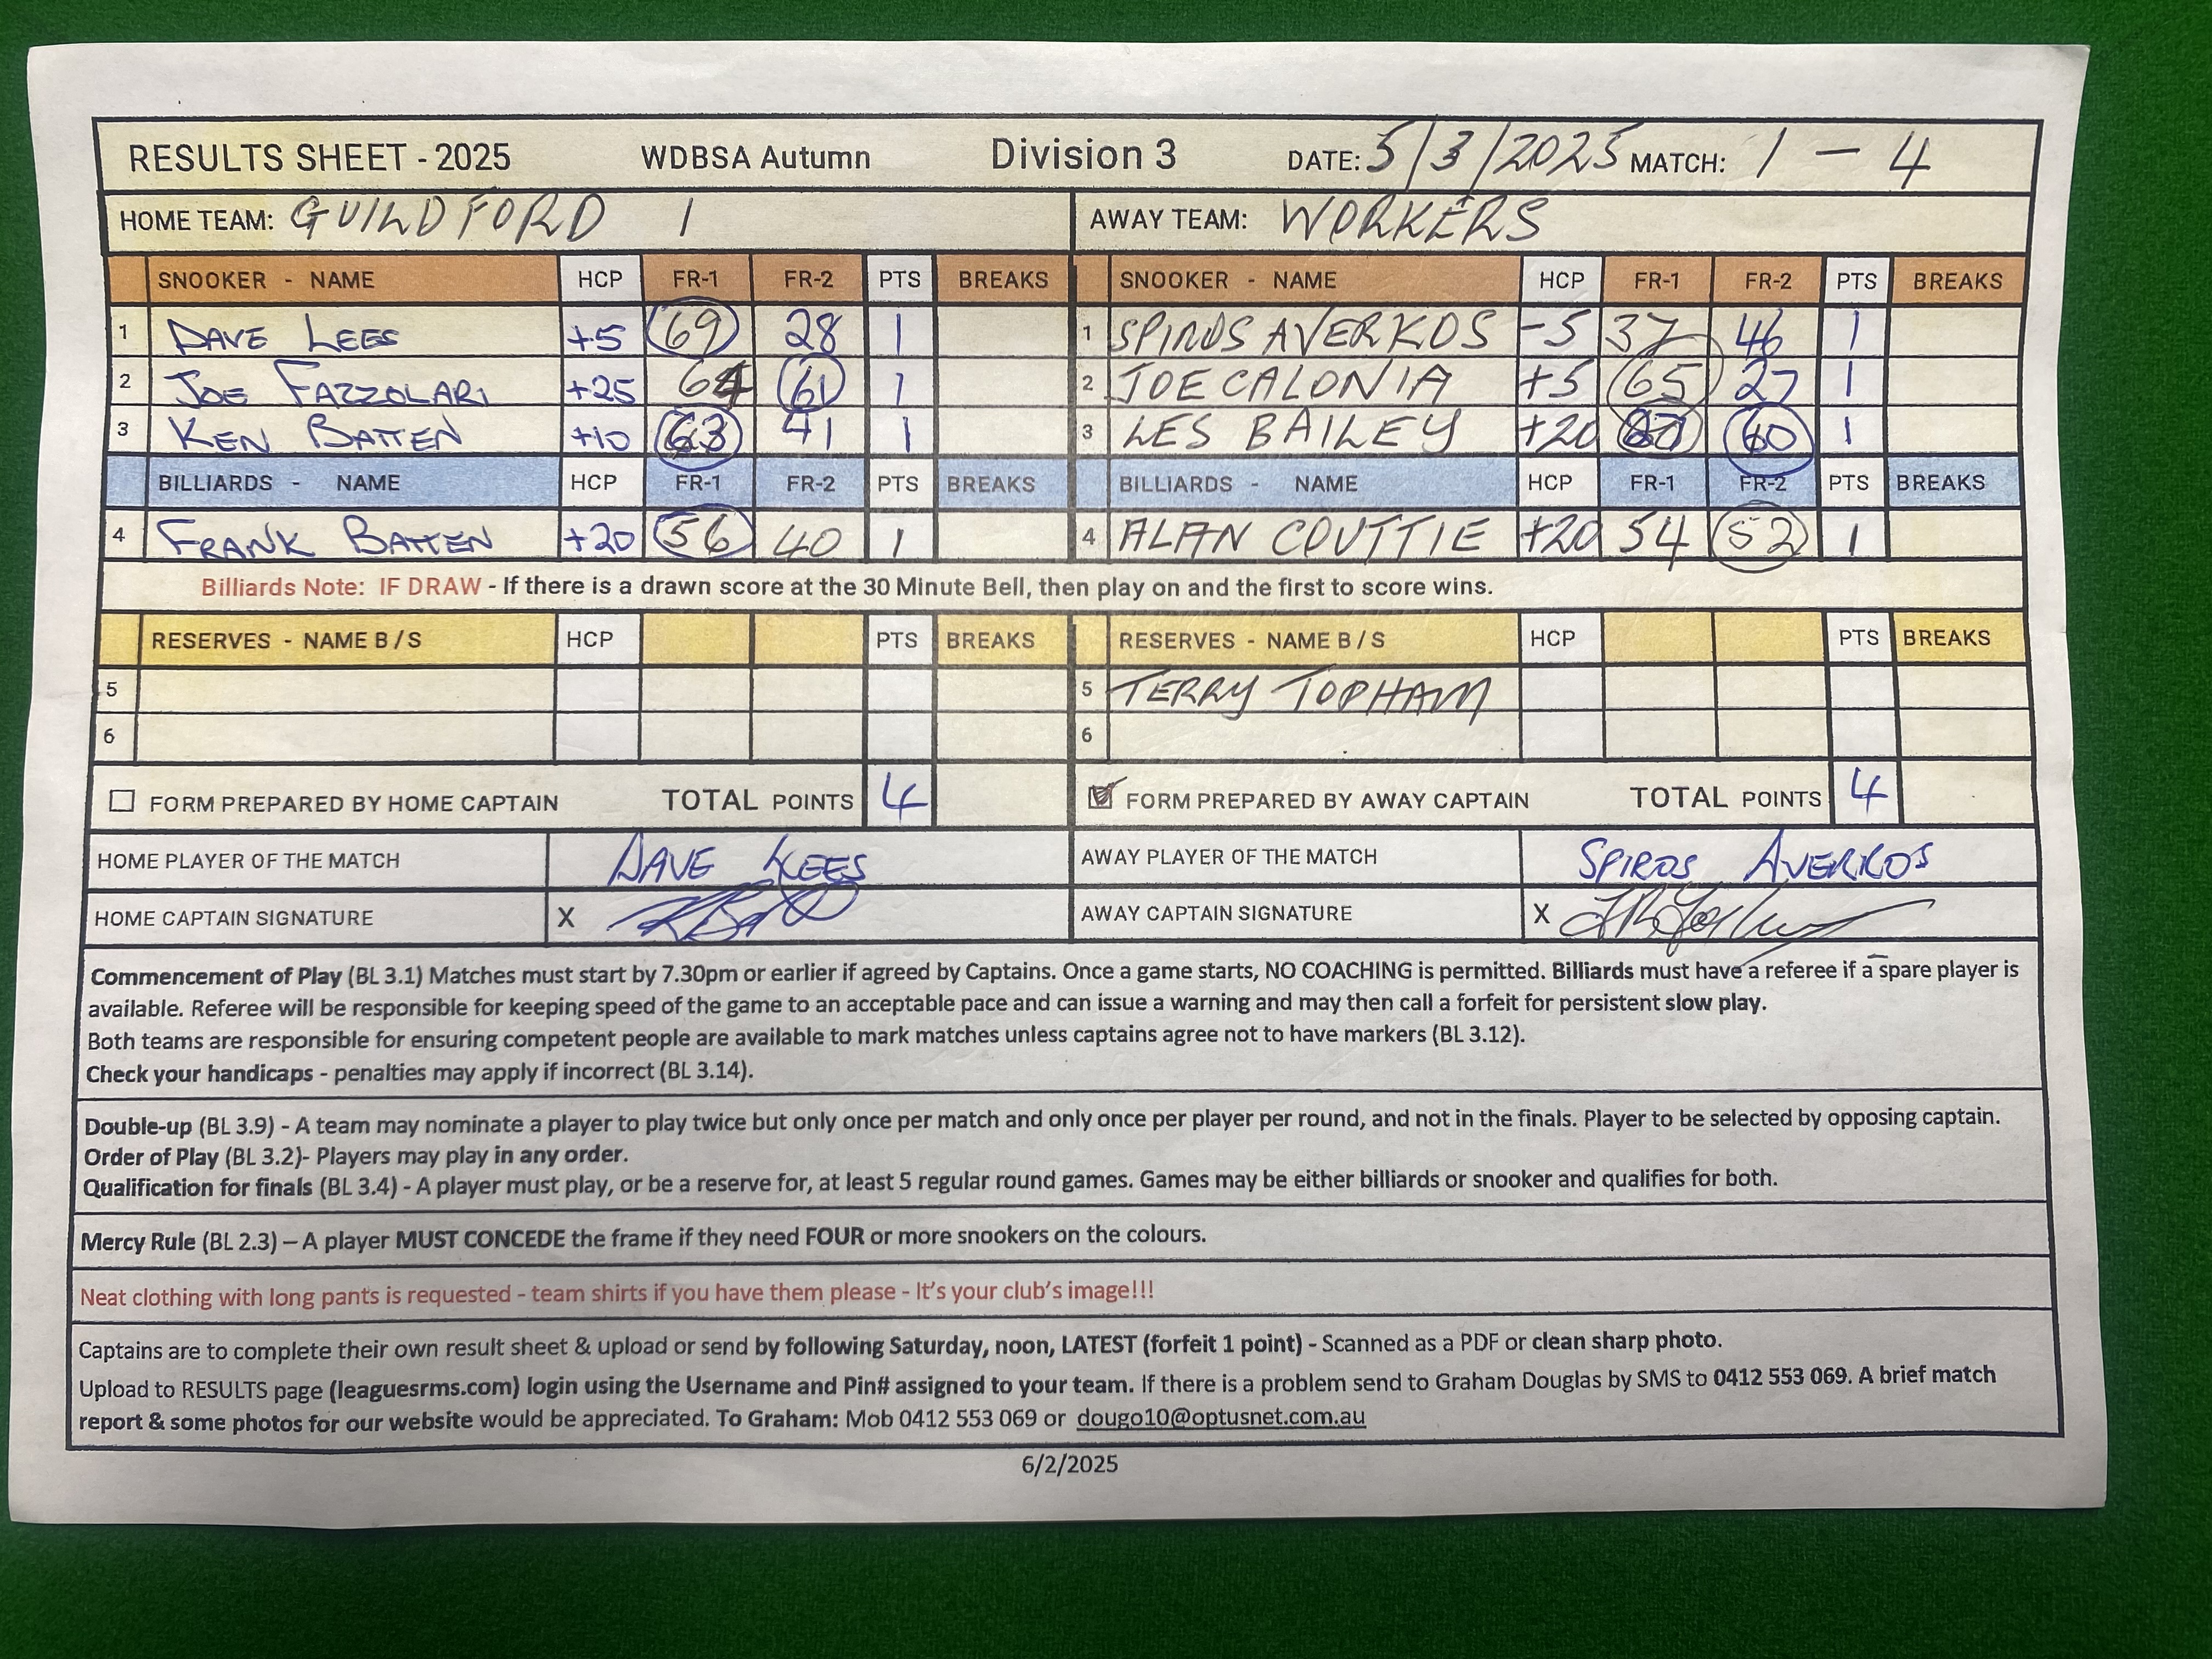 RESULTS SHEET - 2025 WDBSA Autumn Division 3 DATE: 5/3/2025 MATCH: 1 - 4
HOME TEAM: GUILDFORD 1 AWAY TEAM: WORKERS
SNOOKER - NAME HCP FR-1 FR-2 PTS BREAKS SNOOKER - NAME HCP FR-1 FR-2 PTS BREAKS
1 DAVE LEES +5 69 28 1 1 SPIROS AVERKOS -5 37 46 1
2 JOE FAZZOLARI +25 64 61 1 2 JOE CALONIA +5 65 27 1
3 KEN BATTEN +10 63 41 1 3 LES BAILEY +20 60 1
BILLIARDS - NAME HCP FR-1 FR-2 PTS BREAKS BILLIARDS - NAME HCP FR-1 FR-2 PTS BREAKS
4 FRANK BATTEN +20 56 40 1 4 ALAN COUTTIE +20 54 52 1
Billiards Note: IF DRAW - If there is a drawn score at the 30 Minute Bell, then play on and the first to score wins.
RESERVES - NAME B / S HCP PTS BREAKS RESERVES - NAME B / S HCP PTS BREAKS
5 5 TERRY TOPHAM
6 6
FORM PREPARED BY HOME CAPTAIN TOTAL POINTS 4 FORM PREPARED BY AWAY CAPTAIN TOTAL POINTS 4
HOME PLAYER OF THE MATCH DAVE LEES AWAY PLAYER OF THE MATCH SPIROS AVERKOS
HOME CAPTAIN SIGNATURE X AWAY CAPTAIN SIGNATURE X
Commencement of Play (BL 3.1) Matches must start by 7.30pm or earlier if agreed by Captains. Once a game starts, NO COACHING is permitted. Billiards must have a referee if a spare player is
available. Referee will be responsible for keeping speed of the game to an acceptable pace and can issue a warning and may then call a forfeit for persistent slow play.
Both teams are responsible for ensuring competent people are available to mark matches unless captains agree not to have markers (BL 3.12).
Check your handicaps - penalties may apply if incorrect (BL 3.14).
Double-up (BL 3.9) - A team may nominate a player to play twice but only once per match and only once per player per round, and not in the finals. Player to be selected by opposing captain.
Order of Play (BL 3.2)- Players may play in any order.
Qualification for finals (BL 3.4) - A player must play, or be a reserve for, at least 5 regular round games. Games may be either billiards or snooker and qualifies for both.
Mercy Rule (BL 2.3) – A player MUST CONCEDE the frame if they need FOUR or more snookers on the colours.
Neat clothing with long pants is requested - team shirts if you have them please - It's your club's image!!!
Captains are to complete their own result sheet & upload or send by following Saturday, noon, LATEST (forfeit 1 point) - Scanned as a PDF or clean sharp photo.
Upload to RESULTS page (leaguesrms.com) login using the Username and Pin# assigned to your team. If there is a problem send to Graham Douglas by SMS to 0412 553 069. A brief match
report & some photos for our website would be appreciated. To Graham: Mob 0412 553 069 or dougo10@optusnet.com.au
6/2/2025